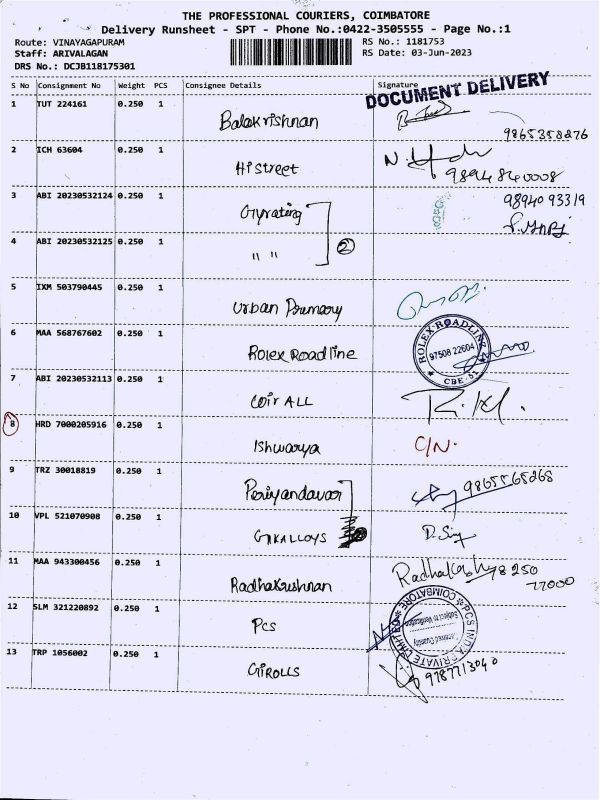 THE PROFESSIONAL COURIERS, COIMBATORE
Delivery Runsheet - SPT - Phone No.:0422-3505555 - Page No.:1
Route: VINAYAGAPURAM RS No.: 1181753
Staff: ARIVALAGAN RS Date: 03-Jun-2023
DRS No.: DCJB118175301
S No Consignment No Weight PCS Consignee Details Signature
DOCUMENT DELIVERY
1 TUT 224161 0.250 1 Balakrishnan
9865358276
2 ICH 63604 0.250 1 Histreet
9894840008
3 ABI 20230532124 0.250 1 Gyrating 98940 93319
4 ABI 20230532125 0.250 1 " " 2
5 IXM 503790445 0.250 1 Urban Pumary
6 MAA 568767602 0.250 1 Rolex Roadline ROLEX ROADLINE 97508 22604 CBE-
7 ABI 20230532113 0.250 1 Coir ALL
8 HRD 7000205916 0.250 1 Ishwarya C/N.
9 TRZ 30018819 0.250 1 Periyandavar 9865565268
10 VPL 521070908 0.250 1 GKALLOYS
11 MAA 943300456 0.250 1 Radhakrishnan 78250
77000
12 SLM 321220892 0.250 1 Pcs PCS INDIA PRIVATE LIMITED COIMBATORE Subject to Verification
13 TRP 1056002 0.250 1 GIROLLS 9787713040